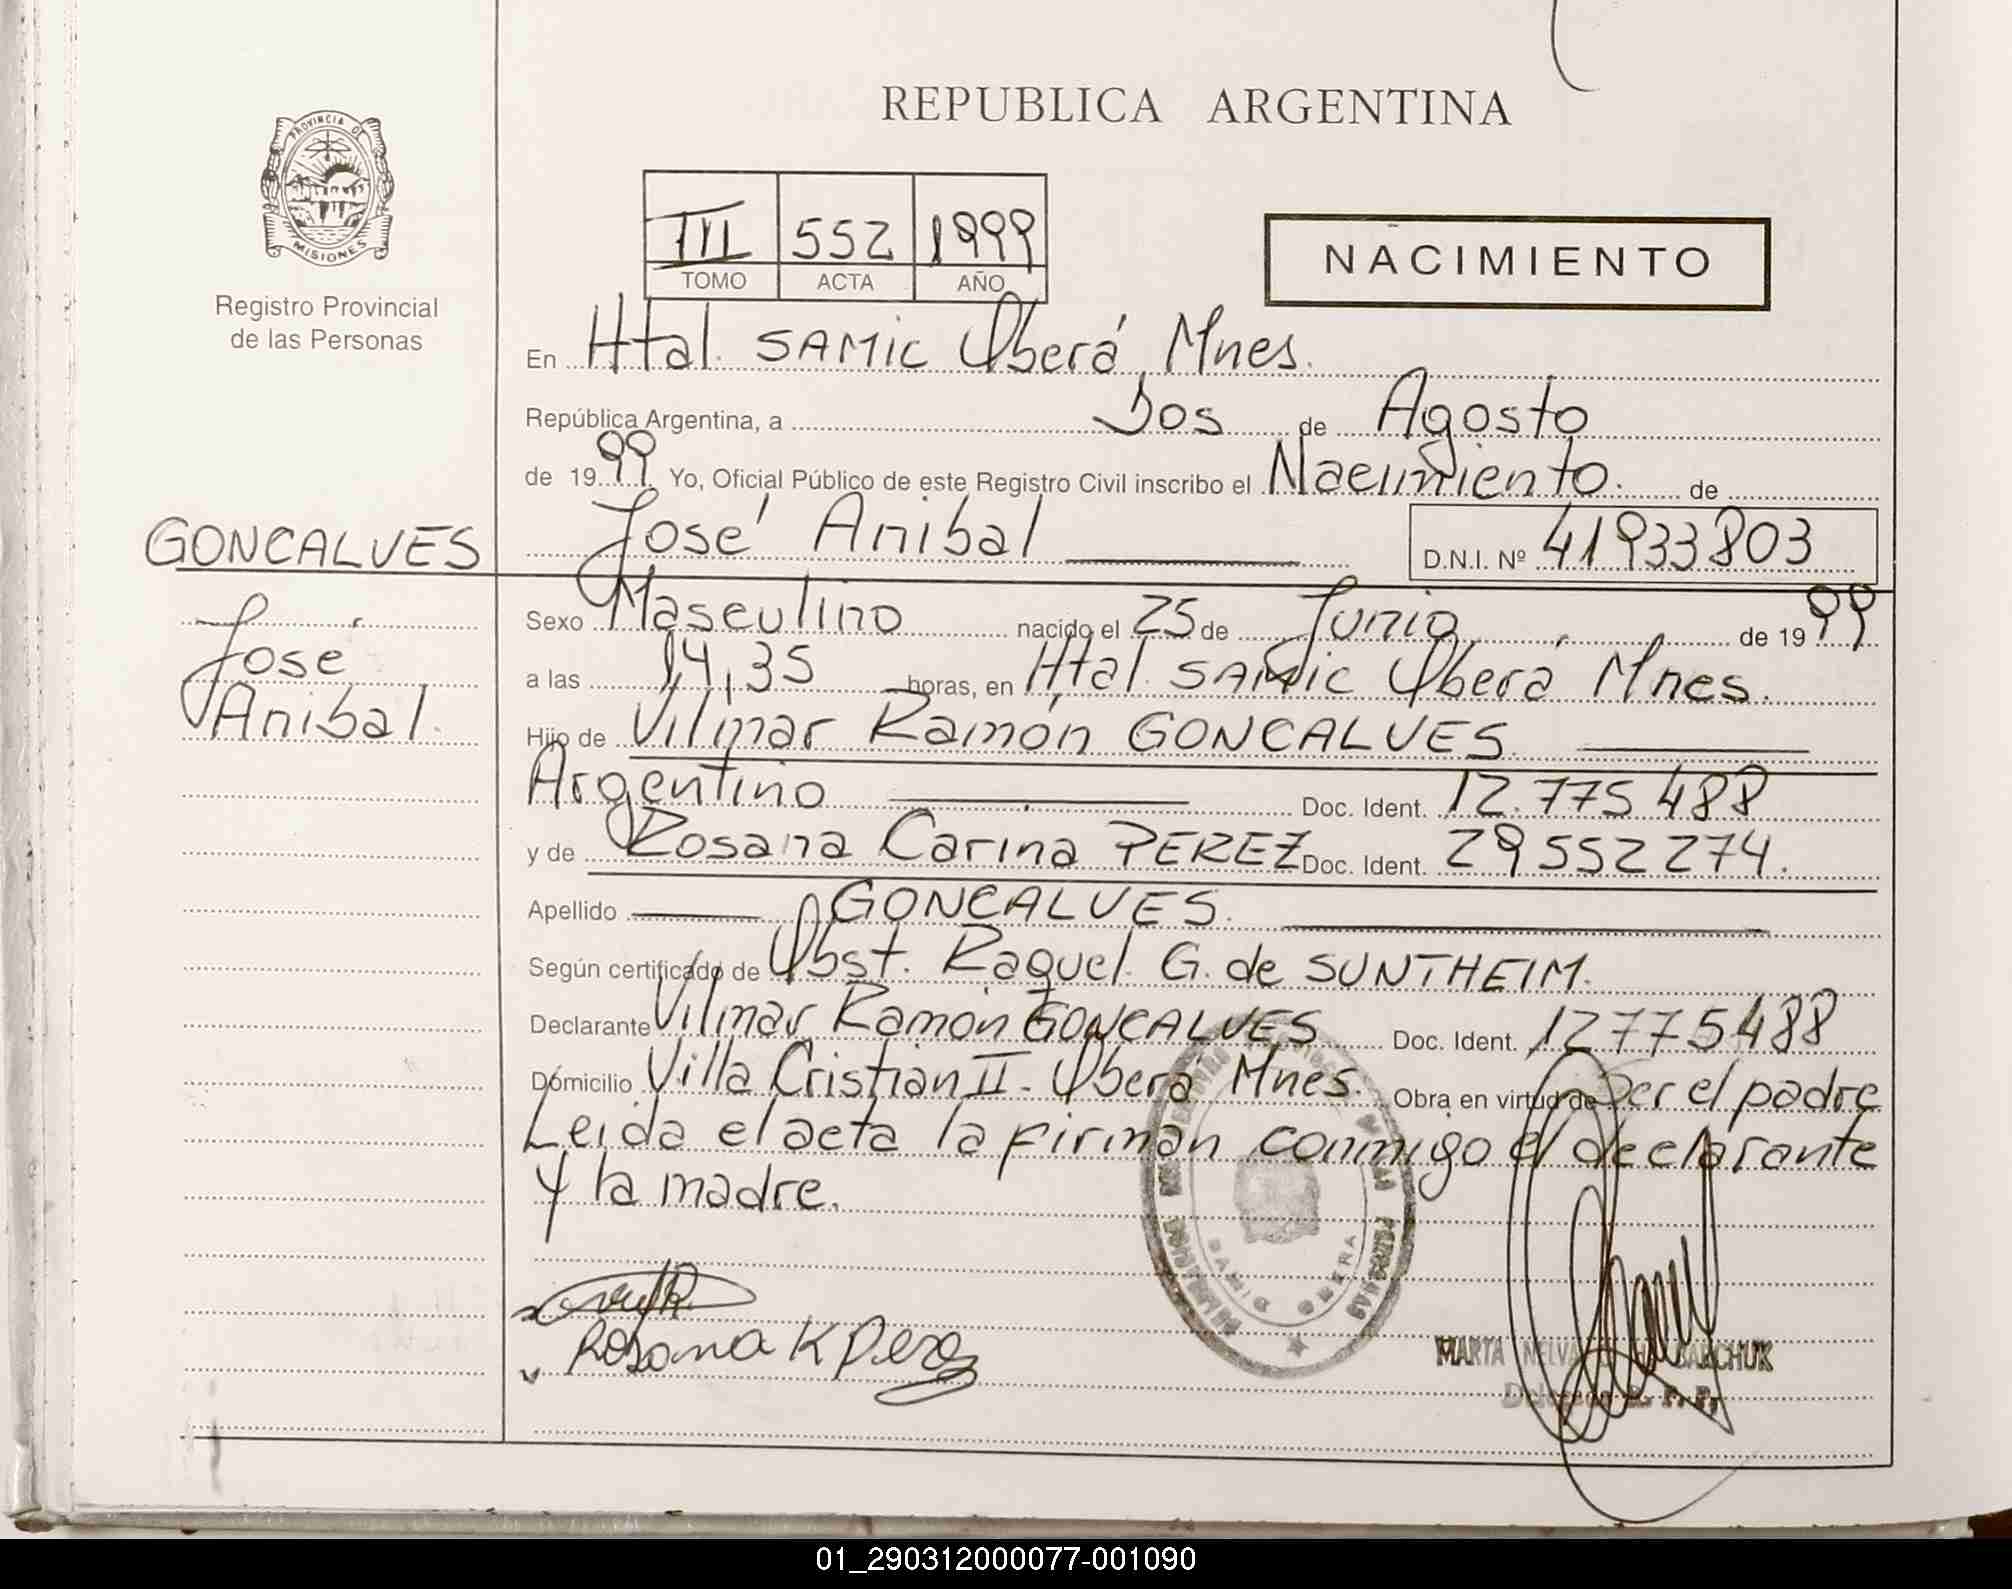 REPUBLICA ARGENTINA
PROVINCIA DE
MISIONES
Registro Provincial
de las Personas
III 552 1999
TOMO ACTA AÑO
NACIMIENTO
En Htal. SAMIC Oberá Mnes.
República Argentina, a Dos de Agosto
de 1999 Yo, Oficial Público de este Registro Civil inscribo el Nacimiento. de
GONCALVES
José Anibal
José Anibal D.N.I. Nº 41933803
Sexo Masculino nacido el 25 de Junio de 1999
a las 14,35 horas, en Htal. SAMIC Oberá Mnes.
Hijo de Vilmar Ramón GONCALVES
Argentino Doc. Ident. 12.775 488
y de Rosana Carina PEREZ Doc. Ident. 29 552 274.
Apellido GONCALVES.
Según certificado de Obst. Raquel G. de SUNTHEIM.
Declarante Vilmar Ramón GONCALVES Doc. Ident. 12775488
Domicilio Villa Cristian II - Oberá Mnes. Obra en virtud de Ser el padre
Leida el acta la firman conmigo el declarante
y la madre.
Rosana K Perez
SAMIC OBERA
MARTA NELVA
01_290312000077-001090